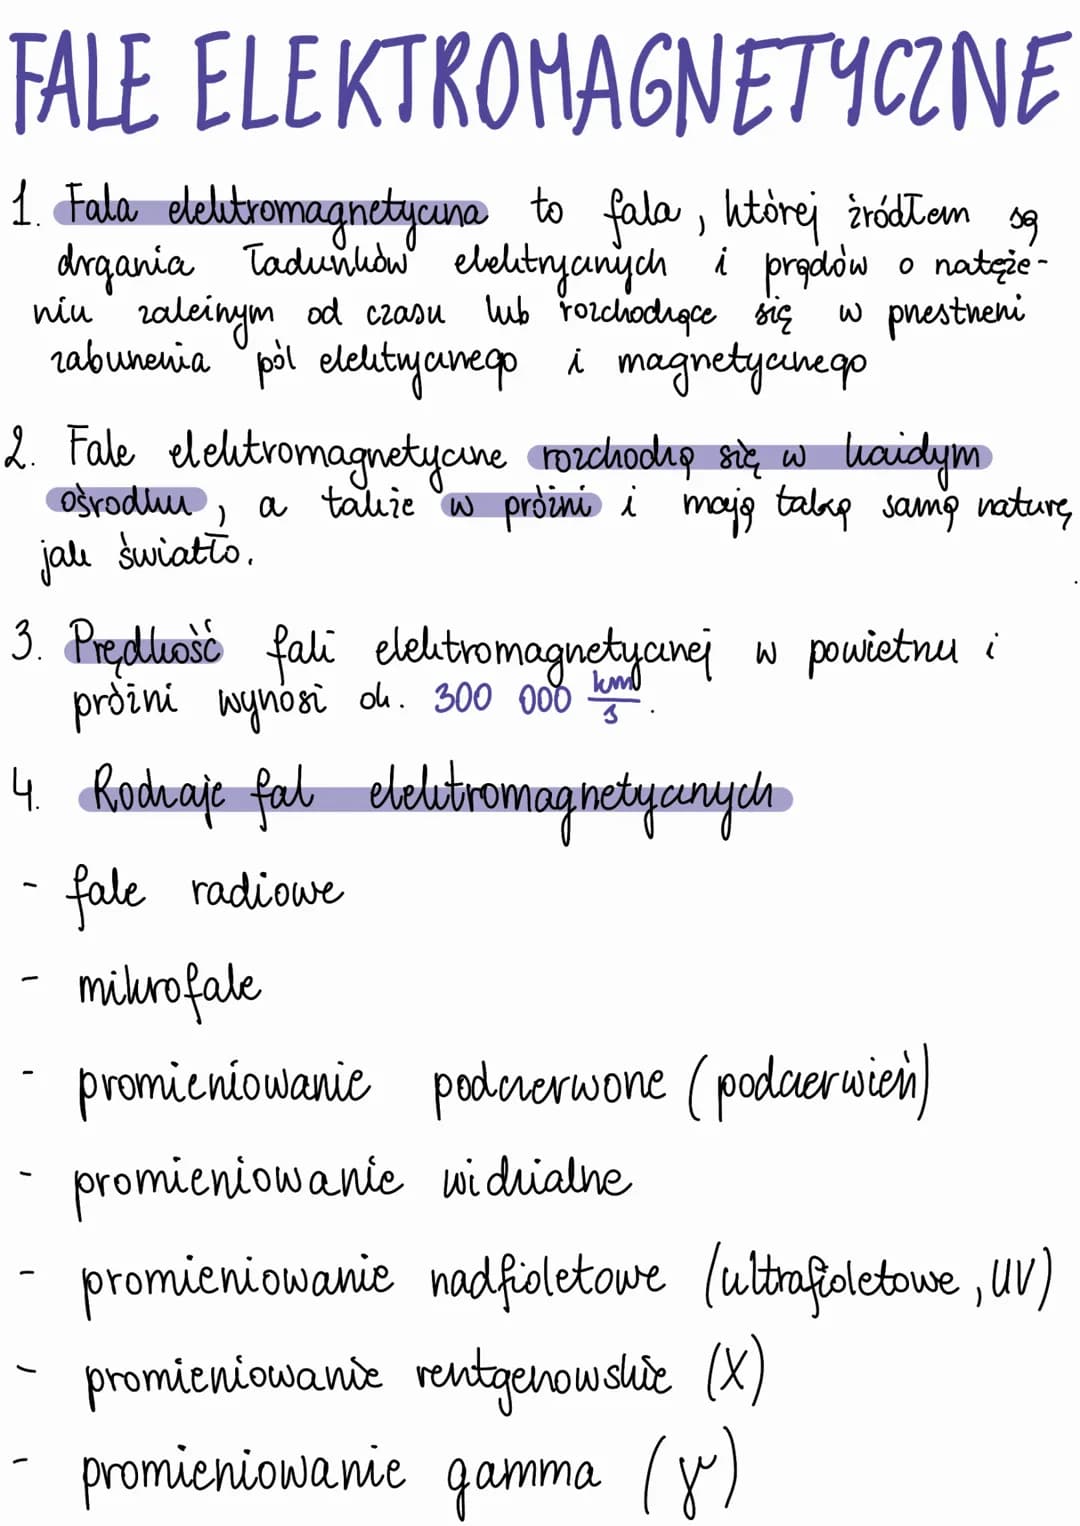 FALE ELEKTROMAGNETYCZNE
1. Fala elektromagnetyczna to fala, której źródłem są
drgania ładunków elektrycznych i prądów o natęże-
niu zależnym od czasu lub rozchodzące się w przestrzeni
zaburzenia pól elektrycznego i magnetycznego
2. Fale elektromagnetyczne rozchodzą się w każdym
ośrodku, a także w próżni i mają taką samą naturę,
jak światło.
3. Prędkość fali elektromagnetycznej w powietrzu i
próżni wynosi ok. 300 000 km/s.
4. Rodzaje fal elektromagnetycznych
- fale radiowe
- mikrofale
- promieniowanie podczerwone (podczerwień)
- promieniowanie widzialne
- promieniowanie nadfioletowe (ultrafioletowe, UV)
- promieniowanie rentgenowskie (X)
- promieniowanie gamma (γ)